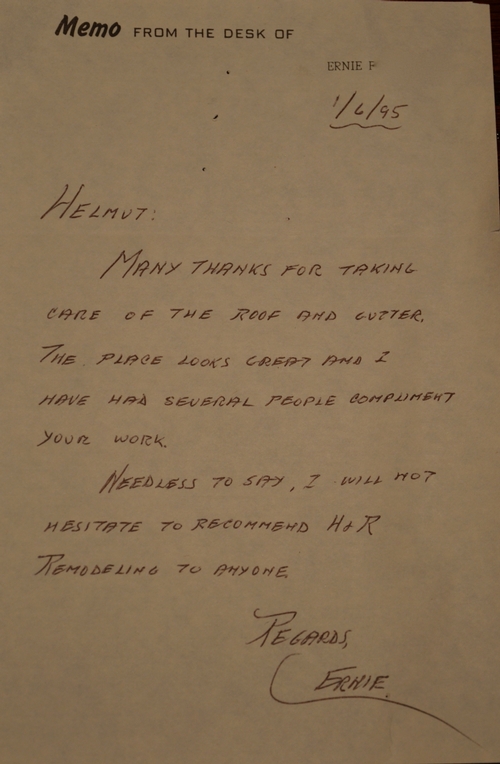 Memo FROM THE DESK OF
ERNIE F
1/6/95
HELMUT:
MANY THANKS FOR TAKING
CARE OF THE ROOF AND GUTTER.
THE PLACE LOOKS GREAT AND I
HAVE HAD SEVERAL PEOPLE COMPLIMENT
YOUR WORK.
NEEDLESS TO SAY, I WILL NOT
HESITATE TO RECOMMEND H&R
REMODELING TO ANYONE.
REGARDS,
ERNIE.